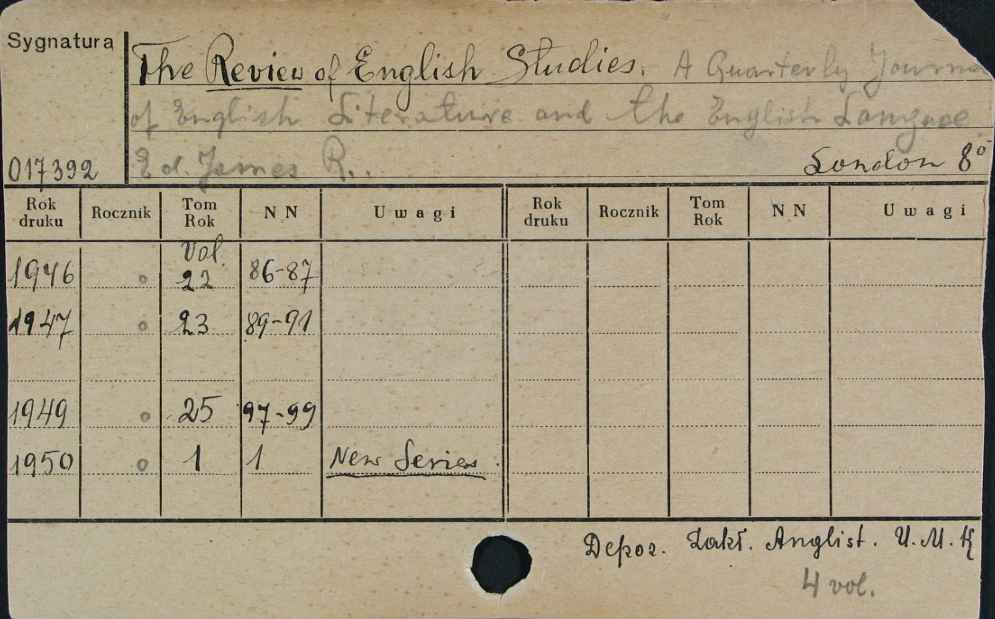 Sygnatura
The Review of English Studies. A Quarterly Journa
of English Literature and the English Langaee
017392 Ed. James R.. London 8°
Rok druku Rocznik Tom Rok NN Uwagi Rok druku Rocznik Tom Rok NN Uwagi
Vol.
1946 o 22 86-87
1947 o 23 89-91
1949 o 25 97-99
1950 o 1 1 New Series
Depoz. Zakł. Anglist. U.M.K
4 vol.